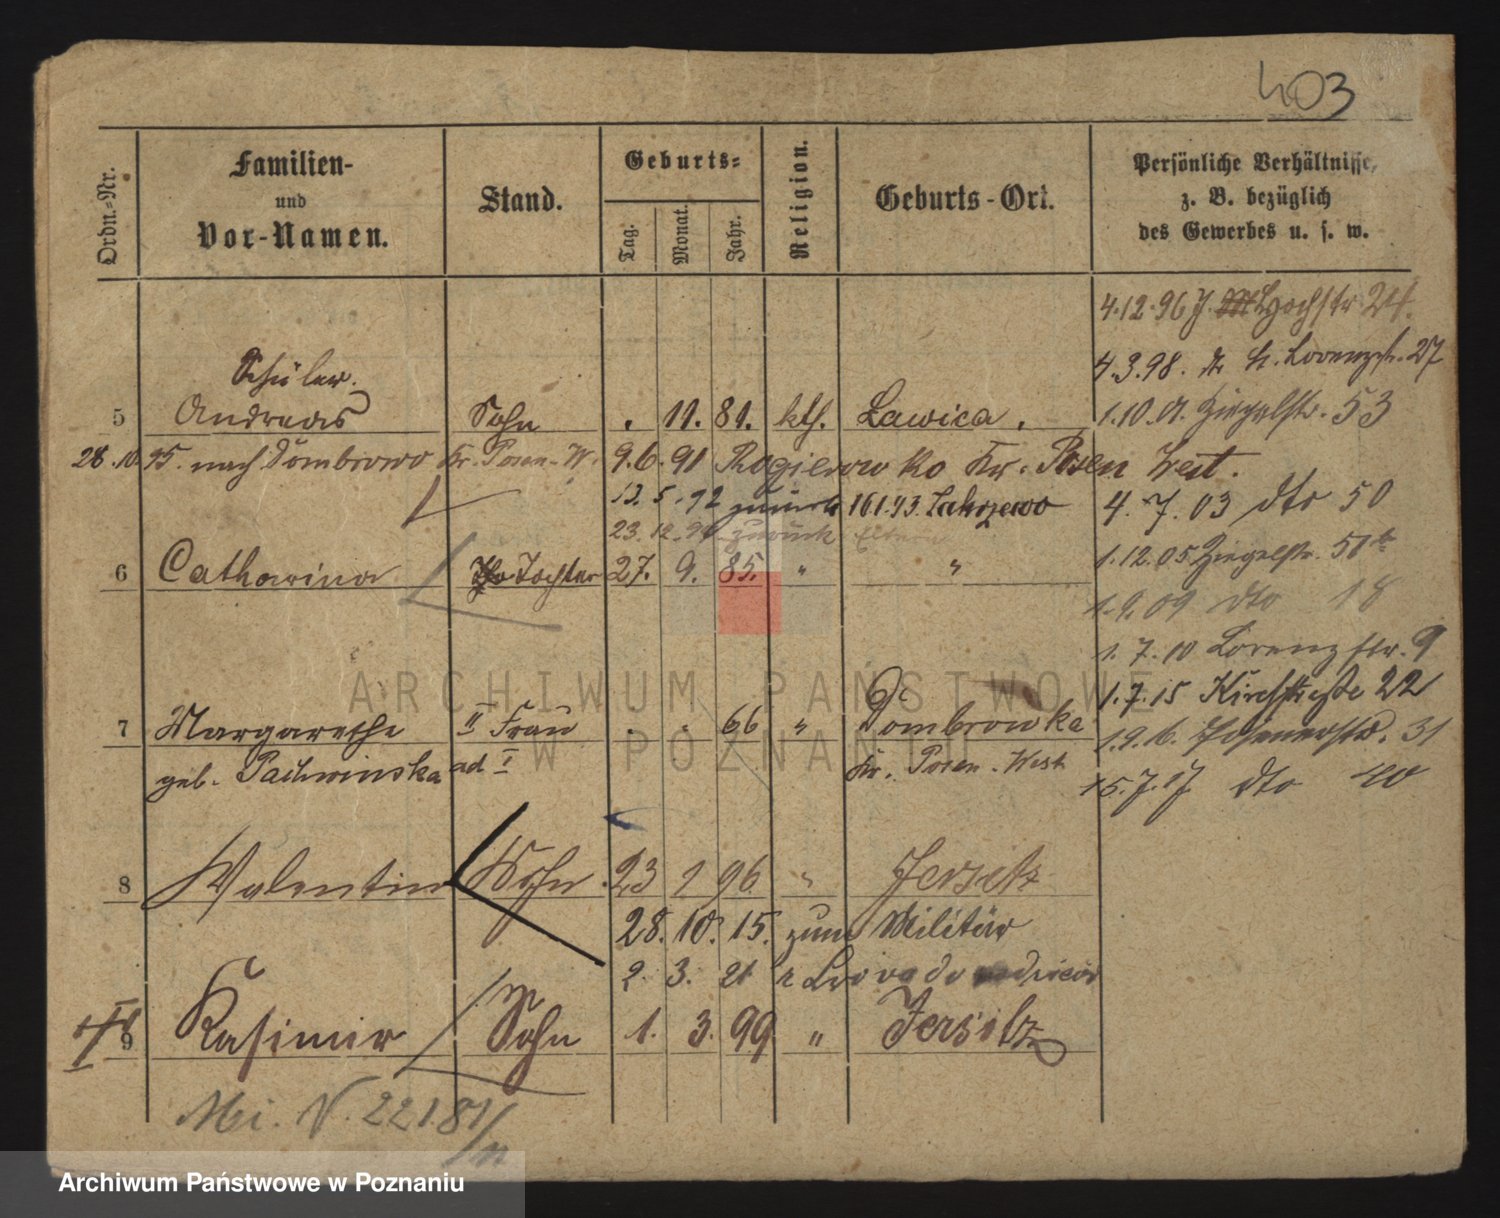 403
Ordn.-Nr.
Familien-
und
Vor-Namen.
Stand.
Geburts-
Tag.
Monat.
Jahr.
Religion.
Geburts-Ort.
Persönliche Verhältnisse,
z. B. bezüglich
des Gewerbes u. s. w.
4.12.96 J. Hochstr 24.
4.3.98. Lorenzstr. 27
Schüler.
5 Andreas Sohn . 11. 81. kth. Lawica.
1.10.01. Ziegelstr. 53
28.10.95. nach Dombrowo Kr. Posen-W. 9.6.91 Rogierowko Kr. Posen West.
12.5.92 zurück 16.1.93. Zakrzewo
4.7.03 dto 50
23.12.94 zurück Eltern
6 Catharina Tochter 27. 9. 85. " "
1.12.05 Ziegelstr. 50
1.9.09 dto 18
1.7.10 Lorenzstr. 9
1.7.15 Kirchstraße 22
7 Margarethe II Frau . . 66 " Dombrowka
1.9.16. Posenerstr. 31
geb. ad I Kr. Posen-West
15.7.17. dto 40
8 Valentin Sohn 23 1 96 " Jersitz
28. 10. 15. zum Militär
2. 3. 21
9 Kasimir Sohn 1. 3. 99 " Jersitz
Mi. V. 221.81/11
ARCHIWUM PAŃSTWOWE
W POZNANIU
Archiwum Państwowe w Poznaniu